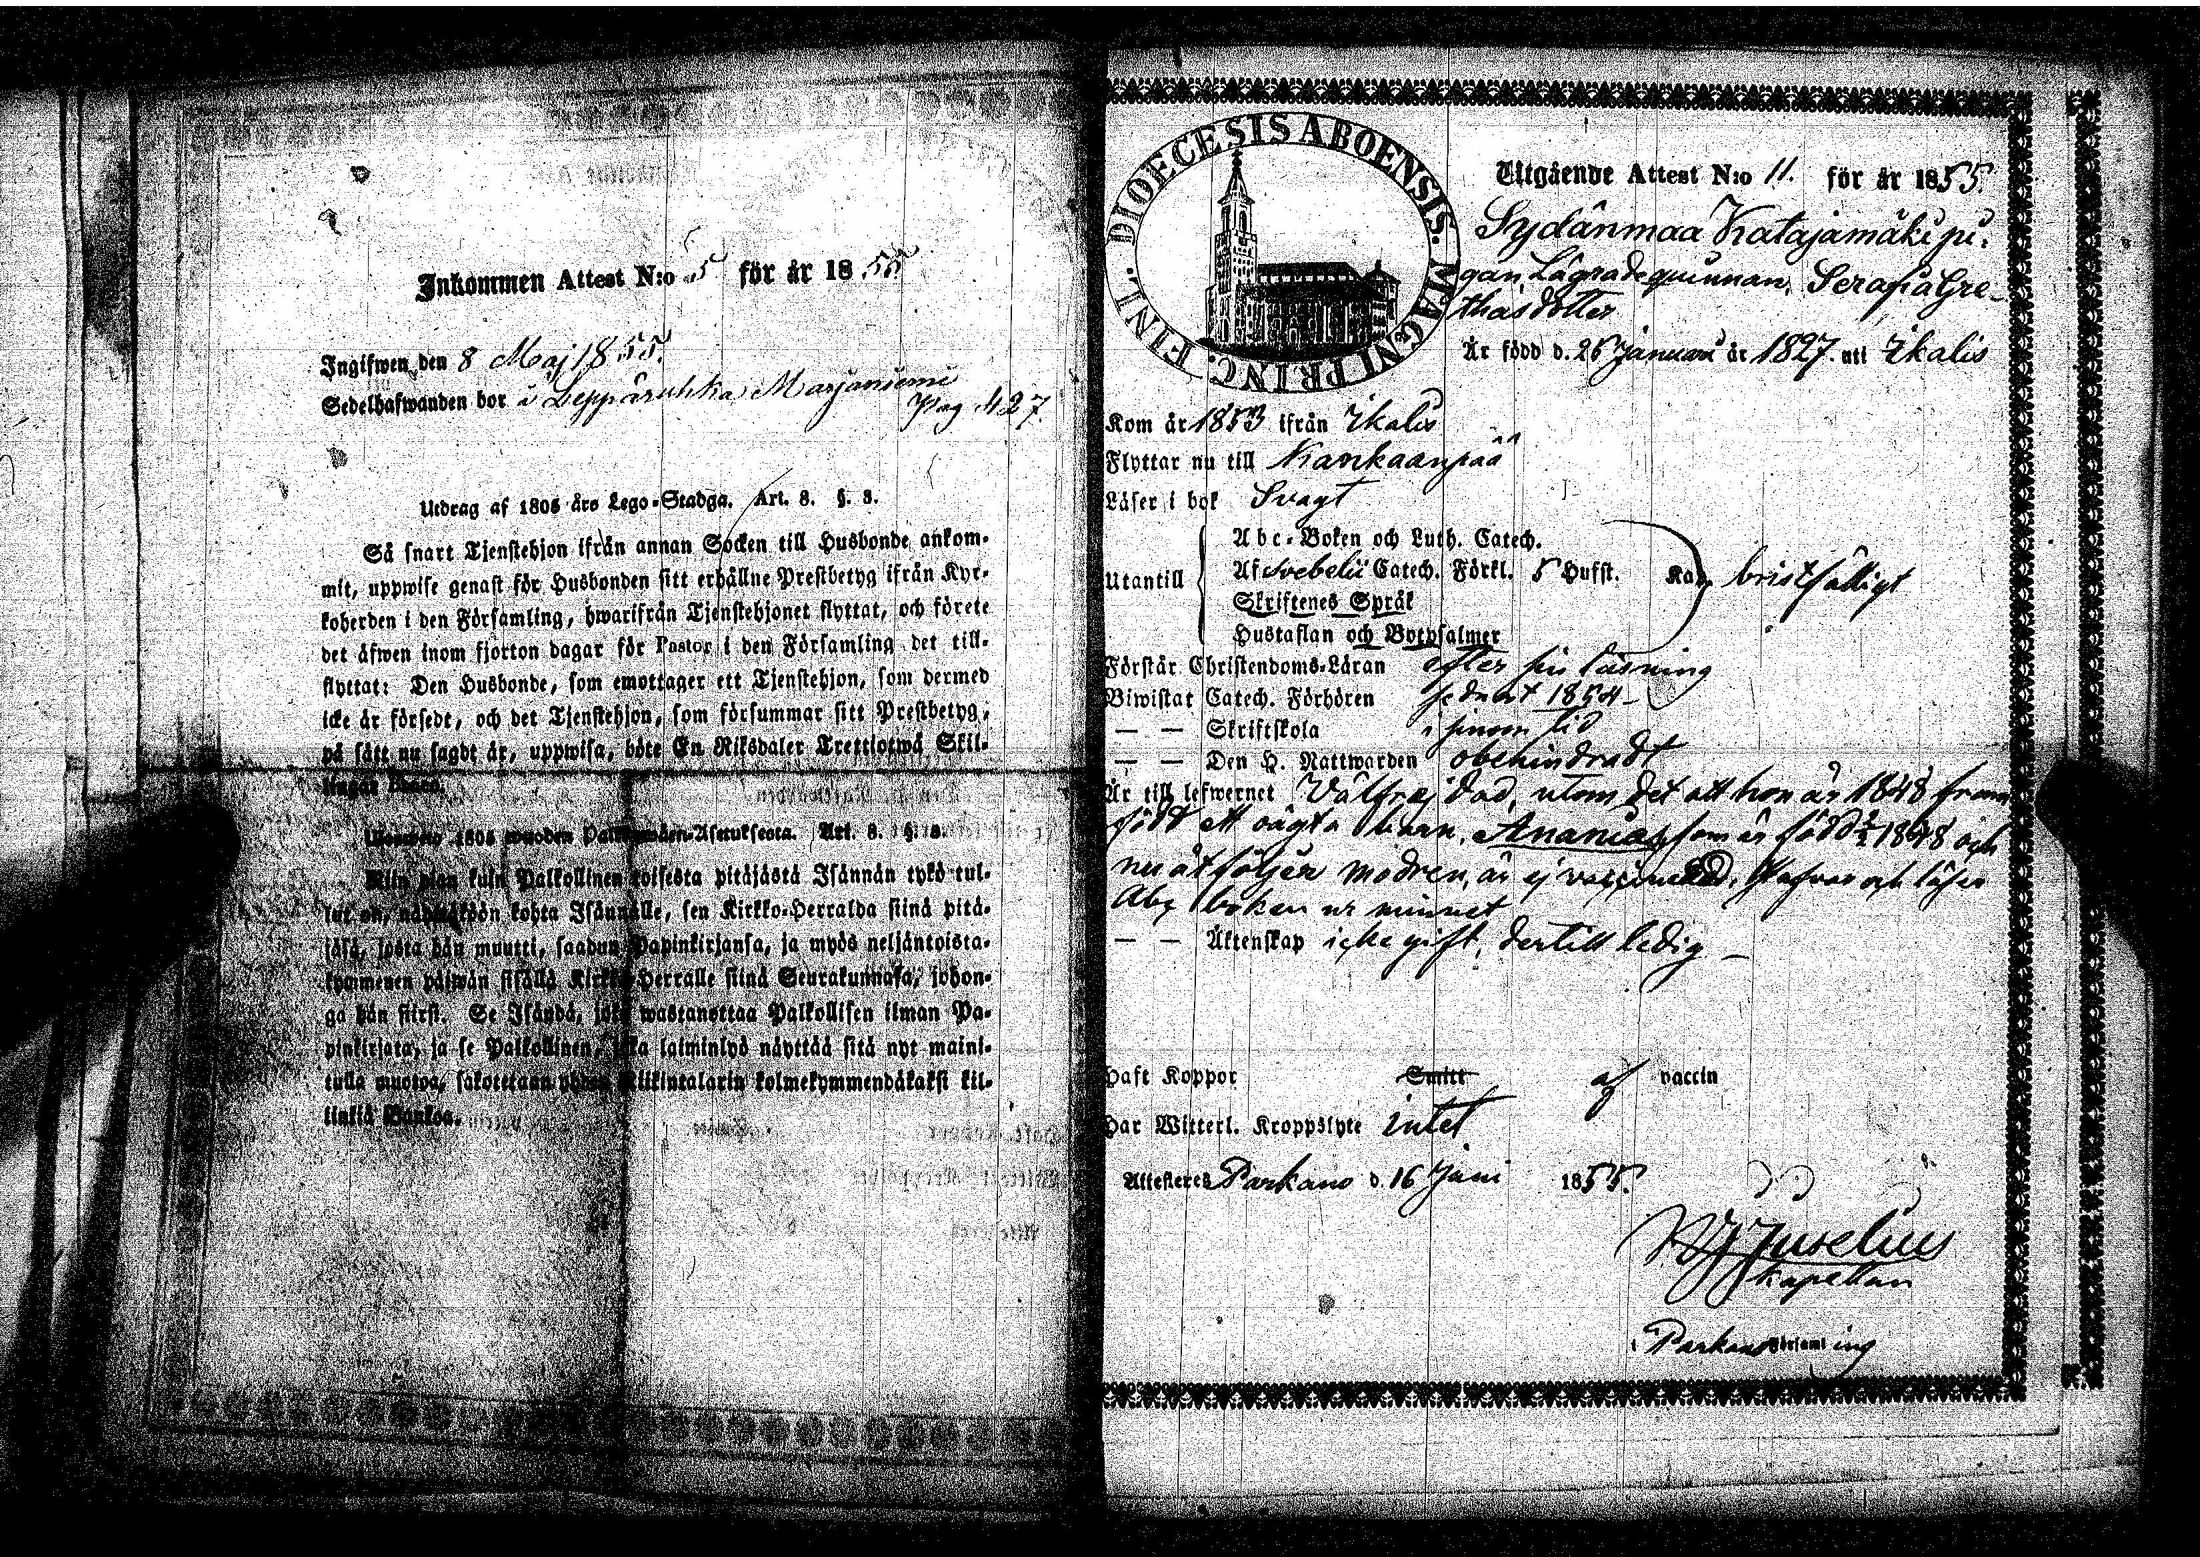 Inkommen Attest N:o 5 för år 1855
Ingifwen den 8 Maj 1855.
Sedelhafwanden bor i Leppäruhka Marjaniemi
Pag 427.
Utdrag af 1805 års Lego-Stadga. Art. 8. §. 3.
Så snart Tjenstehjon ifrån annan Socken till Husbonde ankom-
mit, uppwise genast för Husbonden sitt erhållne Prestbetyg ifrån Kyr-
koherden i den Församling, hwarifrån Tjenstehjonet flyttat, och förete
det äfwen inom fjorton dagar för Pastor i den Församling det till-
flyttat: Den Husbonde, som emottager ett Tjenstehjon, som dermed
icke är försedt, och det Tjenstehjon, som försummar sitt Prestbetyg,
på sätt nu sagdt är, uppwisa, böte En Riksdaler Trettiotwå Skil-
lingar Banco.
1805 wuoden Palkollisten-Asetuksesta. Art. 8. §. 3.
Niin pian kuin Palkollinen toisesta pitäjästä Isännän tykö tul-
lut on, näyttäköön kohta Isännälle, sen Kirkko-Herralda siinä pitä-
jäsä, josta hän muutti, saadun Papinkirjansa, ja myös neljäntoista-
kymmenen päiwän sisällä Kirkko-Herralle siinä Seurakunnasa, johon-
ga hän siirsi. Se Isändä, joka wastanottaa Palkollisen ilman Pa-
pinkirjata, ja se Palkollinen, joka laiminlyö näyttää sitä nyt maini-
tulla muotoa, sakotetaan yhden Riikintalarin kolmekymmendäkaksi kil-
linkiä Bankoa.
DIOECESIS ABOENSIS. MAGNI PRINC. FINL.
Utgående Attest N:o 11. för år 1855.
Sydänmaa Katajamäki pi-
gan, Lägrade quinnan, Serafia Gre-
thasdotter
Är född d. 26 Januari år 1827. uti Ikalis
Kom år 1853 ifrån Ikalis
Flyttar nu till Kankaanpää
Läser i bok Svagt
Abc-Boken och Luth. Catech.
Utantill Af Svebelii Catech. Förkl. 5 Hufst. Kan bristfälligt
Skriftenes Språk
Hustaflan och Botpsalmer
Förstår Christendoms-Läran efter sin läsning
Biwistat Catech. Förhören sednast 1854-
— — Skriftskola i sinom tid
— — Den H. Nattwarden obehindradt
Är till lefwernet Välfrejdad, utom det att hon år 1848 fram
född ett oägta barn, Ananias, som är född 1848 och
nu åtföljer modren, är ej vaccinerad, Stafvar och läser
Abc boken ur minnet
— — Äktenskap icke gift, dertill ledig -
Haft Koppor Smitt af vaccin
Har Witterl. Kroppslyte intet
Attesteres Parkano d. 16 Juni 1855.
Juselius
Kapellan
i Parkano Församling